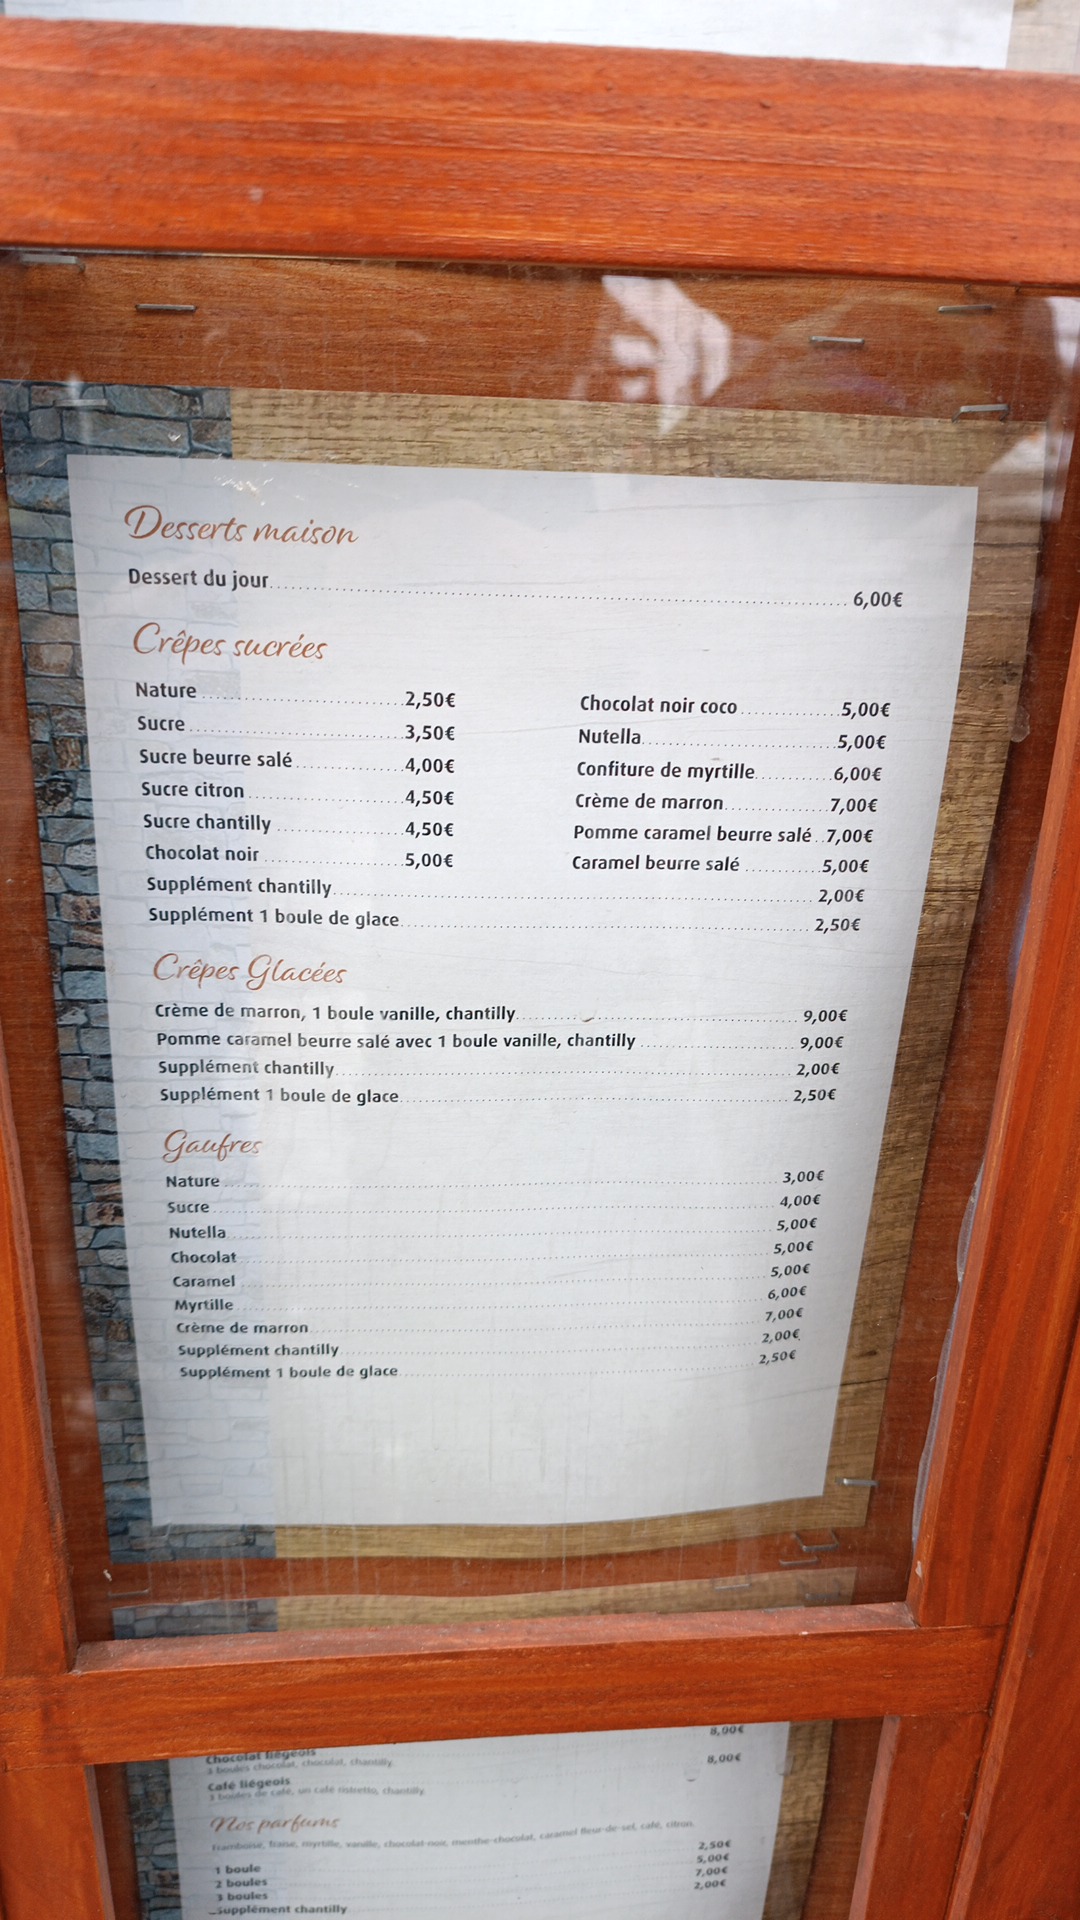 Desserts maison
Dessert du jour 6,00€
Crêpes sucrées
Nature 2,50€
Sucre 3,50€
Sucre beurre salé 4,00€
Sucre citron 4,50€
Sucre chantilly 4,50€
Chocolat noir 5,00€
Chocolat noir coco 5,00€
Nutella 5,00€
Confiture de myrtille 6,00€
Crème de marron 7,00€
Pomme caramel beurre salé 7,00€
Caramel beurre salé 5,00€
Supplément chantilly 2,00€
Supplément 1 boule de glace 2,50€
Crêpes Glacées
Crème de marron, 1 boule vanille, chantilly 9,00€
Pomme caramel beurre salé avec 1 boule vanille, chantilly 9,00€
Supplément chantilly 2,00€
Supplément 1 boule de glace 2,50€
Gaufres
Nature 3,00€
Sucre 4,00€
Nutella 5,00€
Chocolat 5,00€
Caramel 5,00€
Myrtille 6,00€
Crème de marron 7,00€
Supplément chantilly 2,00€
Supplément 1 boule de glace 2,50€
8,00€
Chocolat liégeois
3 boules chocolat, chocolat, chantilly
8,00€
Café liégeois
3 boules de café, un café ristretto, chantilly
Nos parfums
Framboise, fraise, myrtille, vanille, chocolat-noir, menthe-chocolat, caramel fleur-de-sel, café, citron.
1 boule 2,50€
2 boules 5,00€
3 boules 7,00€
Supplément chantilly 2,00€